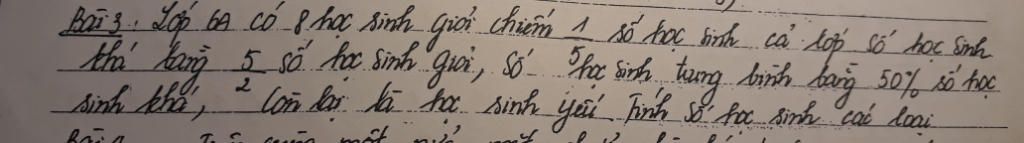 Bài 3: Lớp 6A có 8 học sinh giỏi chiếm 1/5 số học sinh cả lớp số học sinh
khá bằng 5/2 số học sinh giỏi, số học sinh trung bình bằng 50% số học
sinh khá, còn lại là học sinh yếu Tính số học sinh các loại